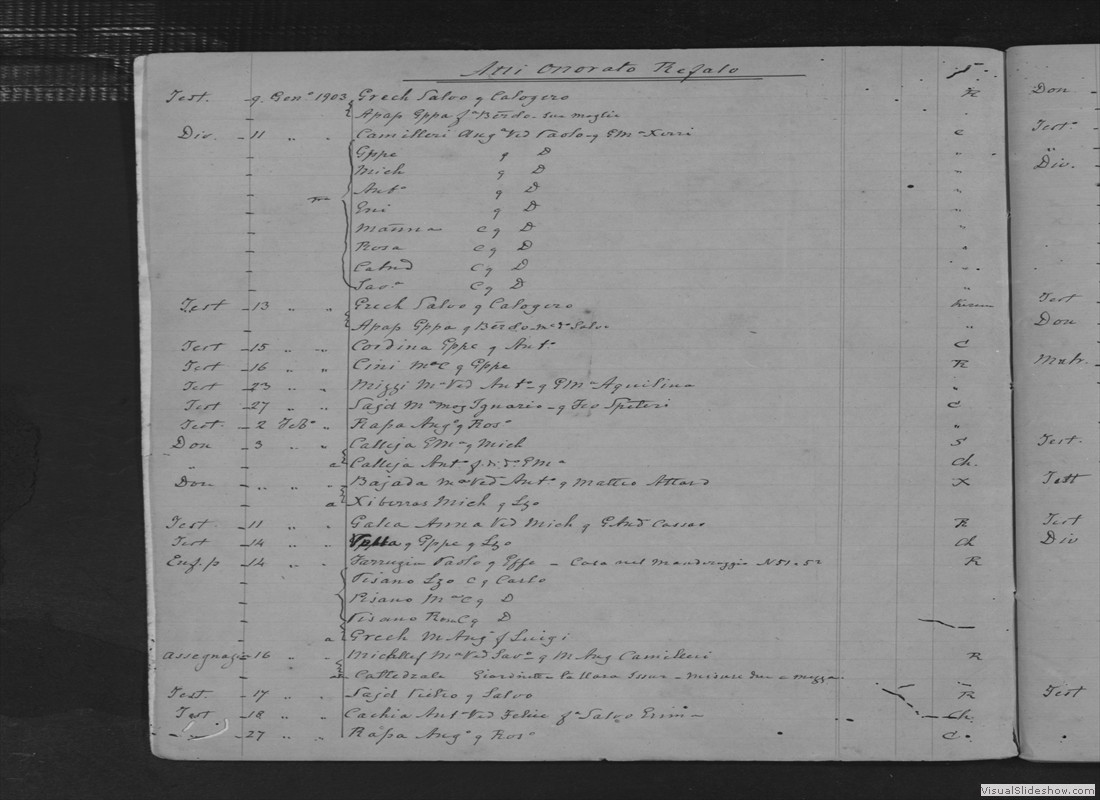 Atti Onorato Refalo
Test. - 9. Genº 1903 Grech Salvo q Calogero R
Apap Gppa fª Berdo sua moglie
Div. - 11 " " Camilleri Angª Ved Paolo q GMª Xerri C
Gppe q D "
Mich q D "
Antº q D "
Eni q D "
Marina C q D "
Rosa C q D "
Catnd C q D "
Savª C q D "
Test - 13 " " Grech Salvo q Calogero
Apap Gppa q Berdo Salvo "
Test - 15 " " Cordina Gppe q Antº C
Test - 16 " " Cini Mª C q Gppe R
Test - 23 " " Mizzi Mª Ved Antº q GMª Aquilina "
Test - 27 " " Sajd Mª mog Ignazio q Feo Spiteri C
Test. - 2 Febº " Rapa Angº q Rosº "
Don - 3 " " Calleja GMª q Mich S
" a Calleja Antº f. GMª Ch.
Don - " " " Bajada Mª Ved Antº q Matteo Attard X
a Xiberras Mich q Lzo
Test - 11 " " Galea Anna Ved Mich q Gebnd Cassar R
Test - 14 " " q Gppe q Lzo Ch
Enf. p - 14 " " Farrugia Paolo q Gppe - Casa nel Manderaggio N 51. 52 R
Pisano Lzo C q Carlo
Pisano Mª C q D
Pisano C q D
a Grech M Angº f Luigi
Assegnaz - 16 " " Micallef Mª Ved Savº q M Ang Camilleri R
a Cattedrale Giardinetto - misure due e mezza
Test. - 17 " " Sajd Pietro q Salvo R
Test - 18 " " Cachia Antª Ved Felice fª Salvo Ch.
" - 27 " " Rapa Angº q Rosº C.
Don
Testº
"
Div.
Test
Don
Matr.
Test.
Test
Test
Div
Test
VisualSlideshow.com